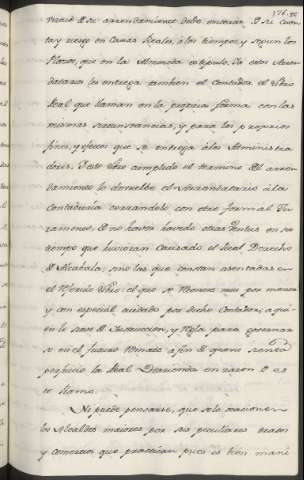 tticio d. se arrendamiento debe enterar d. su cuen
ta y riesgo en Caxas Reales, á los tiempos, y segun los
Plazos, que en la Almoneda estipulo. A estos Arren
datarios les entrega tambien el Contador el Libro
Real que llaman en la propria forma con las
mismas circunstancias, y para los proprios
fines, y efectos que se entrega á los Administra
dores. Y este Libro cumplido el termino del arren
damiento lo devuelbe el Arrendatario á la
Contaduria cerrandolo con otro formal Ju
ramento, de no haber havido otras Ventas en su
tiempo que huvieran Causado el Real Derecho
de Alcabala, sino las que constan asentadas en
el referido Libro: el que se Reconoce muy por menor
y con especial cuidado por dicho Contador, a qui
en le sirve de Instruccion, y Regla para governar
se en el futuro Remate á fin de que no sienta
perjuicio la Real Hacienda en razon de es
te Ramo.
Ni puede pensarse, que solo ocasionen
los Alcaldes mayores por sus peculiares tratos
y comercios que practican pues es bien mani